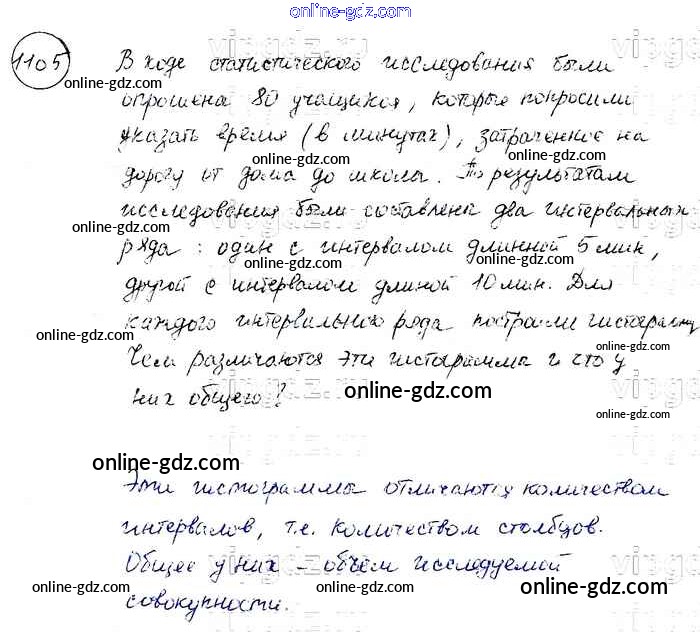 online-gdz.com
1105
В ходе статистического исследования были
online-gdz.com
опрошена 80 учащихся, которые попросили
online-gdz.com
указать время (в минутах), затраченное на
online-gdz.com
дорогу от дома до школы. По результатам
online-gdz.com
исследования были составлена два интервальных
online-gdz.com
ряда: один с интервалом длинной 5 мин,
online-gdz.com
другой с интервалом длиной 10 мин. Для
каждого интервального ряда построили гистограмму
online-gdz.com
Чем различаются эти гистограмма и что у
online-gdz.com
них общего?
online-gdz.com
online-gdz.com
Эти гистограммы отличаются количеством
интервалов, т.е. количеством столбцов.
online-gdz.com
Общее у них – объем исследуемой
online-gdz.com online-gdz.com online-gdz.com
совокупности.